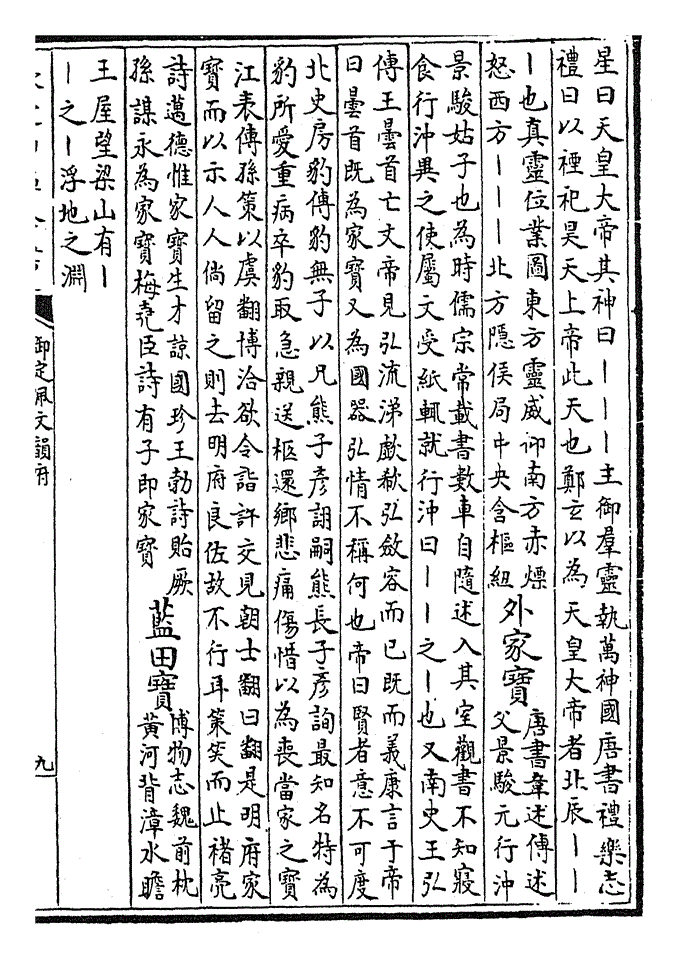 星曰天皇大帝其神曰｜｜｜主御羣靈執萬神國唐書禮樂志
禮曰以禋祀昊天上帝此天也鄭玄以為天皇大帝者北辰｜｜
｜也真靈位業圖東方靈威仰南方赤熛
怒西方｜｜｜北方隱侯局中央含樞紐
外家寶
唐書韋述傳述
父景駿元行沖
景駿姑子也為時儒宗常載書數車自隨述入其室觀書不知寢
食行沖異之使屬文受紙輒就行沖曰｜｜之｜也又南史王弘
傳王曇首亡文帝見弘流涕歔欷弘斂容而已既而義康言于帝
曰曇首既為家寶又為國器弘情不稱何也帝曰賢者意不可度
北史房豹傳豹無子以兄熊子彥詡嗣熊長子彥詢最知名特為
豹所愛重病卒豹取急親送柩還鄉悲痛傷惜以為喪當家之寶
江表傳孫策以虞翻博洽欲令詣許交見朝士翻曰翻是明府家
寶而以示人人倘留之則去明府良佐故不行耳策笑而止褚亮
詩邁德惟家寶生才諒國珍王勃詩貽厥
孫謀永為家寶梅堯臣詩有子即家寶
藍田寶
博物志魏前枕
黃河背漳水瞻
王屋望梁山有｜
｜之｜浮地之淵
御定佩文韻府
九